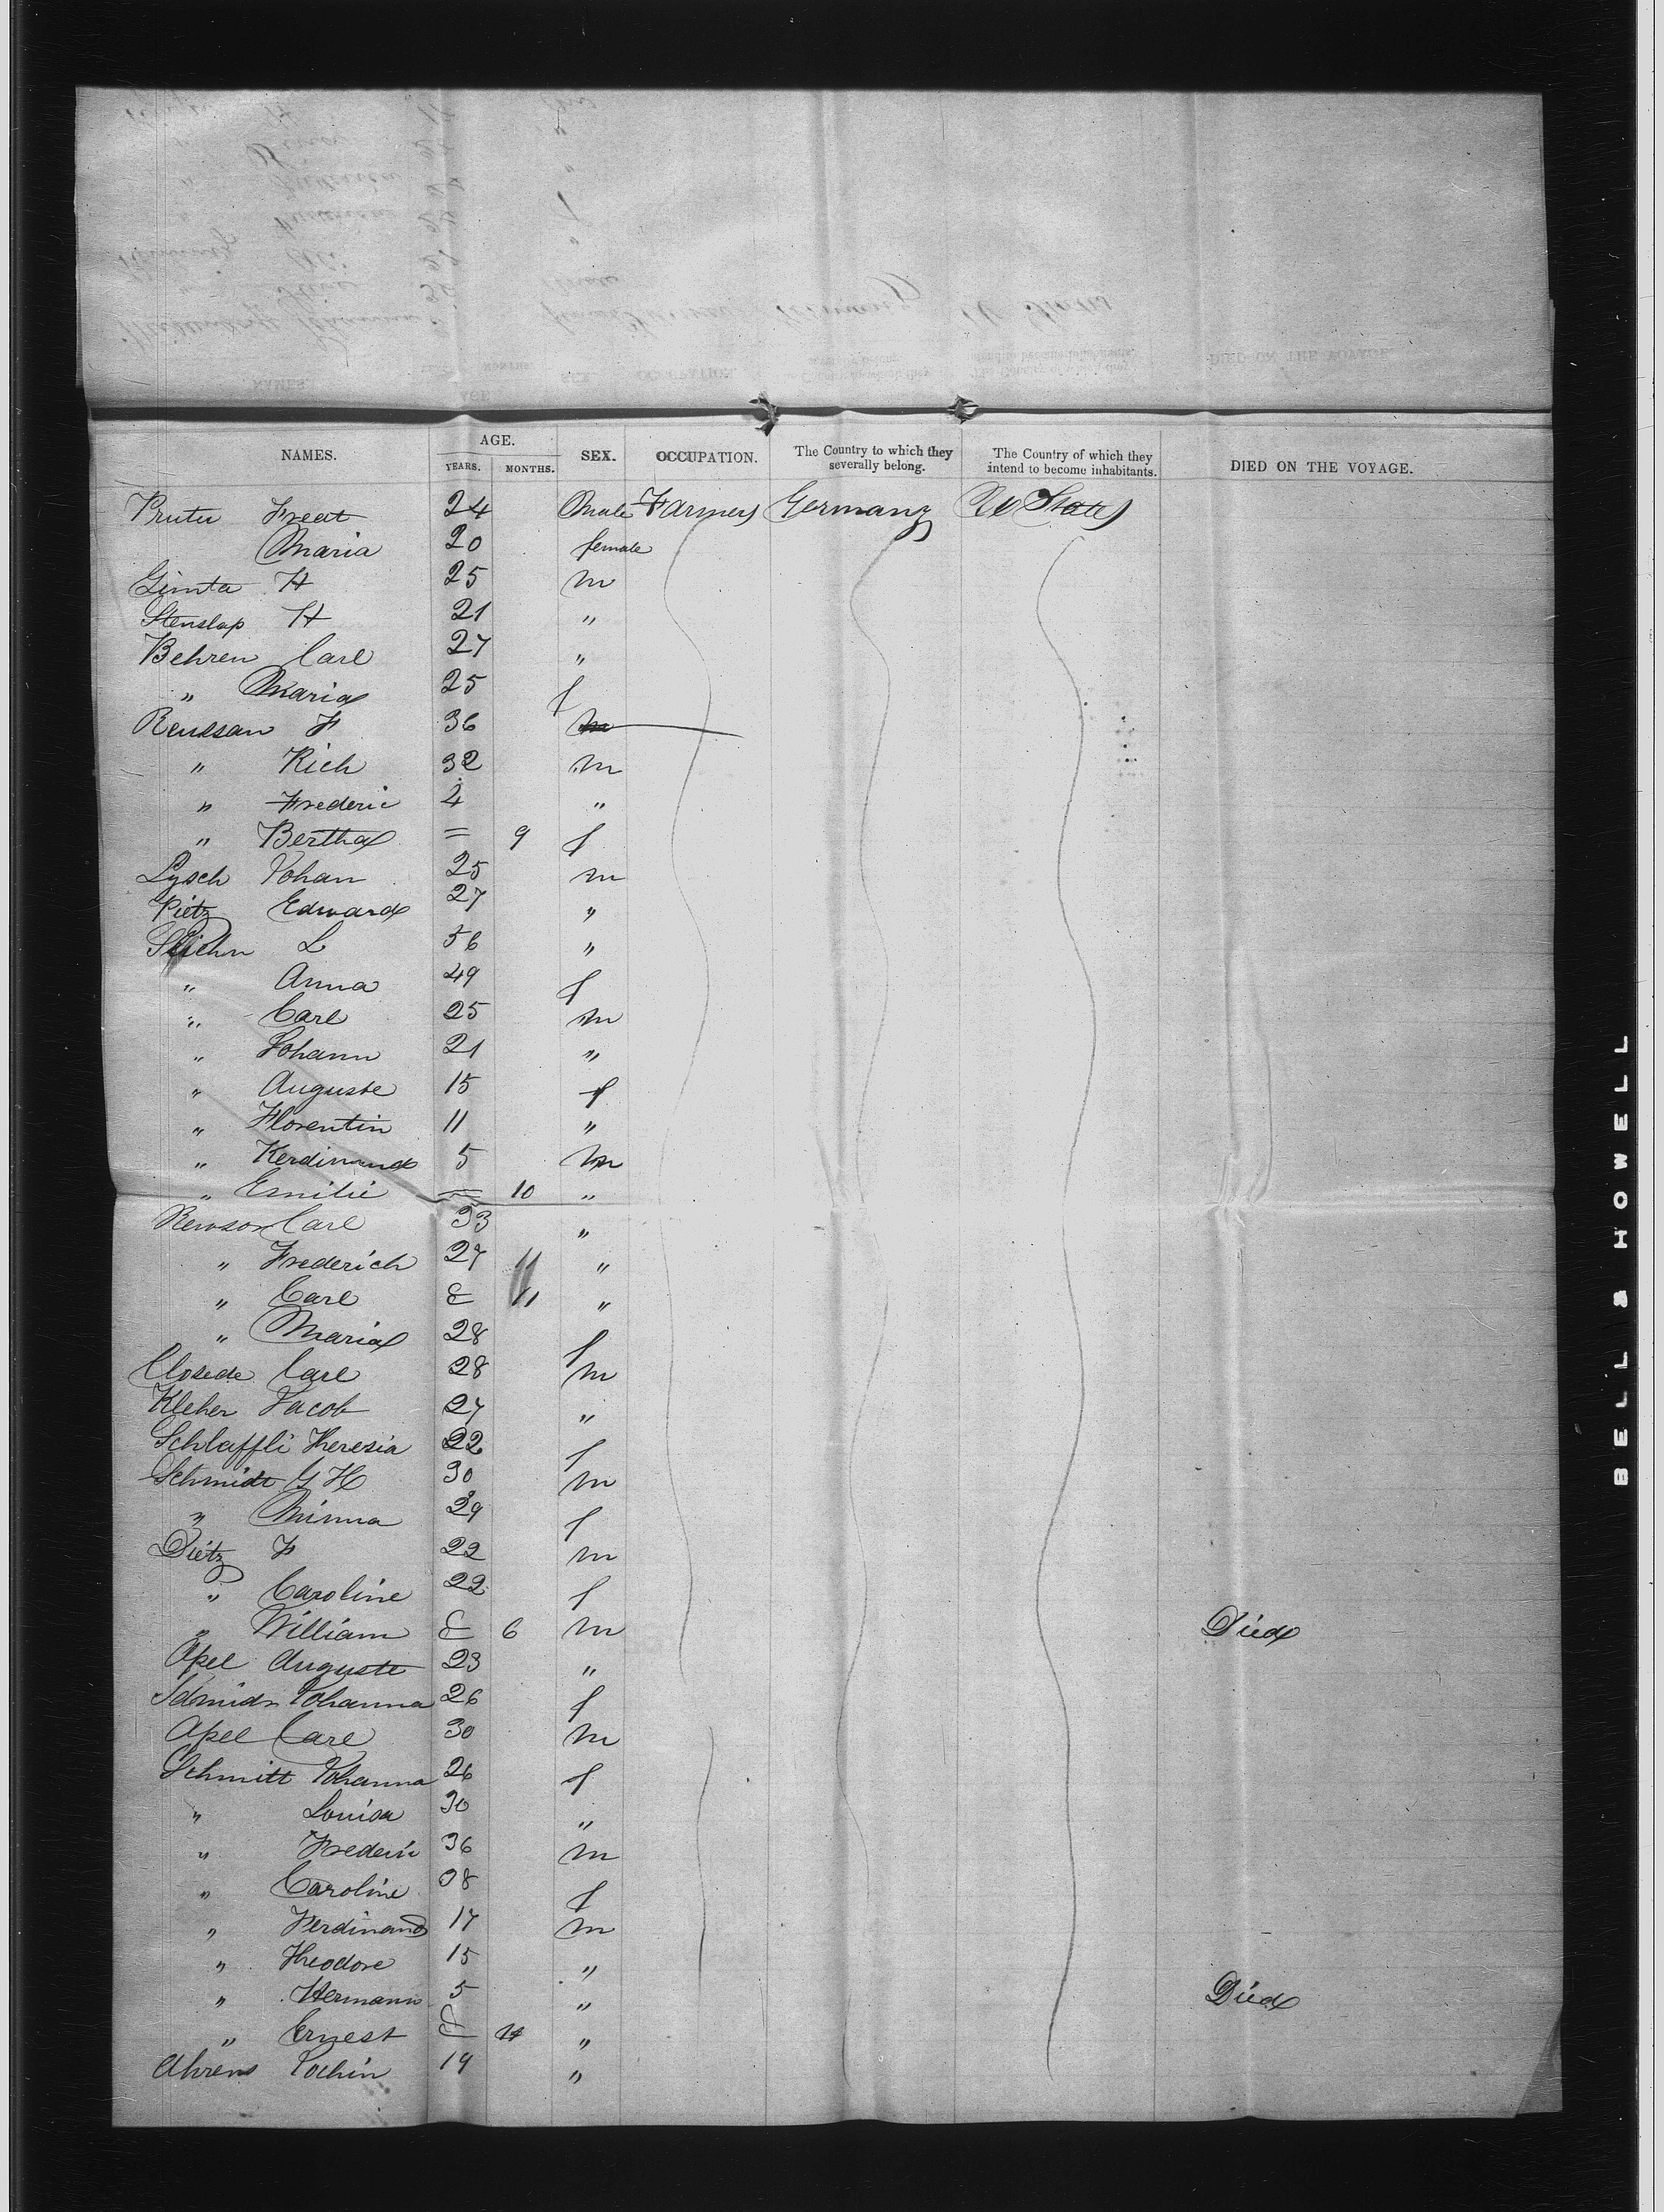 NAMES. AGE. YEARS. MONTHS. SEX. OCCUPATION. The Country to which they severally belong. The Country of which they intend to become inhabitants. DIED ON THE VOYAGE.
Pruter Freat 24 Male Farmers Germany U States
Maria 20 female
Gimta H 25 m
Stenslap H 21 "
Behren Carl 27 "
" Maria 25 f
Reussan F 36 m
" Rich 32 m
" Frederic 4 "
" Bertha = 9 f
Lysch Johan 25 m
Pietz Edward 27 "
L 56 "
" Anna 49 f
" Carl 25 m
" Johann 21 "
" Auguste 15 f
" Florentin 11 "
" Ferdinand 5 m
" Emilie = 10 "
Rewson Carl 33 "
" Frederich 27 11 "
" Carl & 11 "
" Maria 28 f
Closede Carl 28 m
Kleher Jacob 27 "
Schlaffli Theresia 22 f
Schmidt G H 30 m
" Minna 29 f
Dietz F 22 m
" Caroline 22 f
" William & 6 m Died
Apel Auguste 23 "
Schmidt Johanna 26 f
Apel Carl 30 m
Schmitt Johanna 26 f
" Louisa 30 "
" Frederic 36 m
" Caroline 38 f
" Ferdinand 17 m
" Theodore 15 "
" Hermann 5 " Died
" Ernest & "
Ahrens Jochin 19 "
BELL & HOWELL